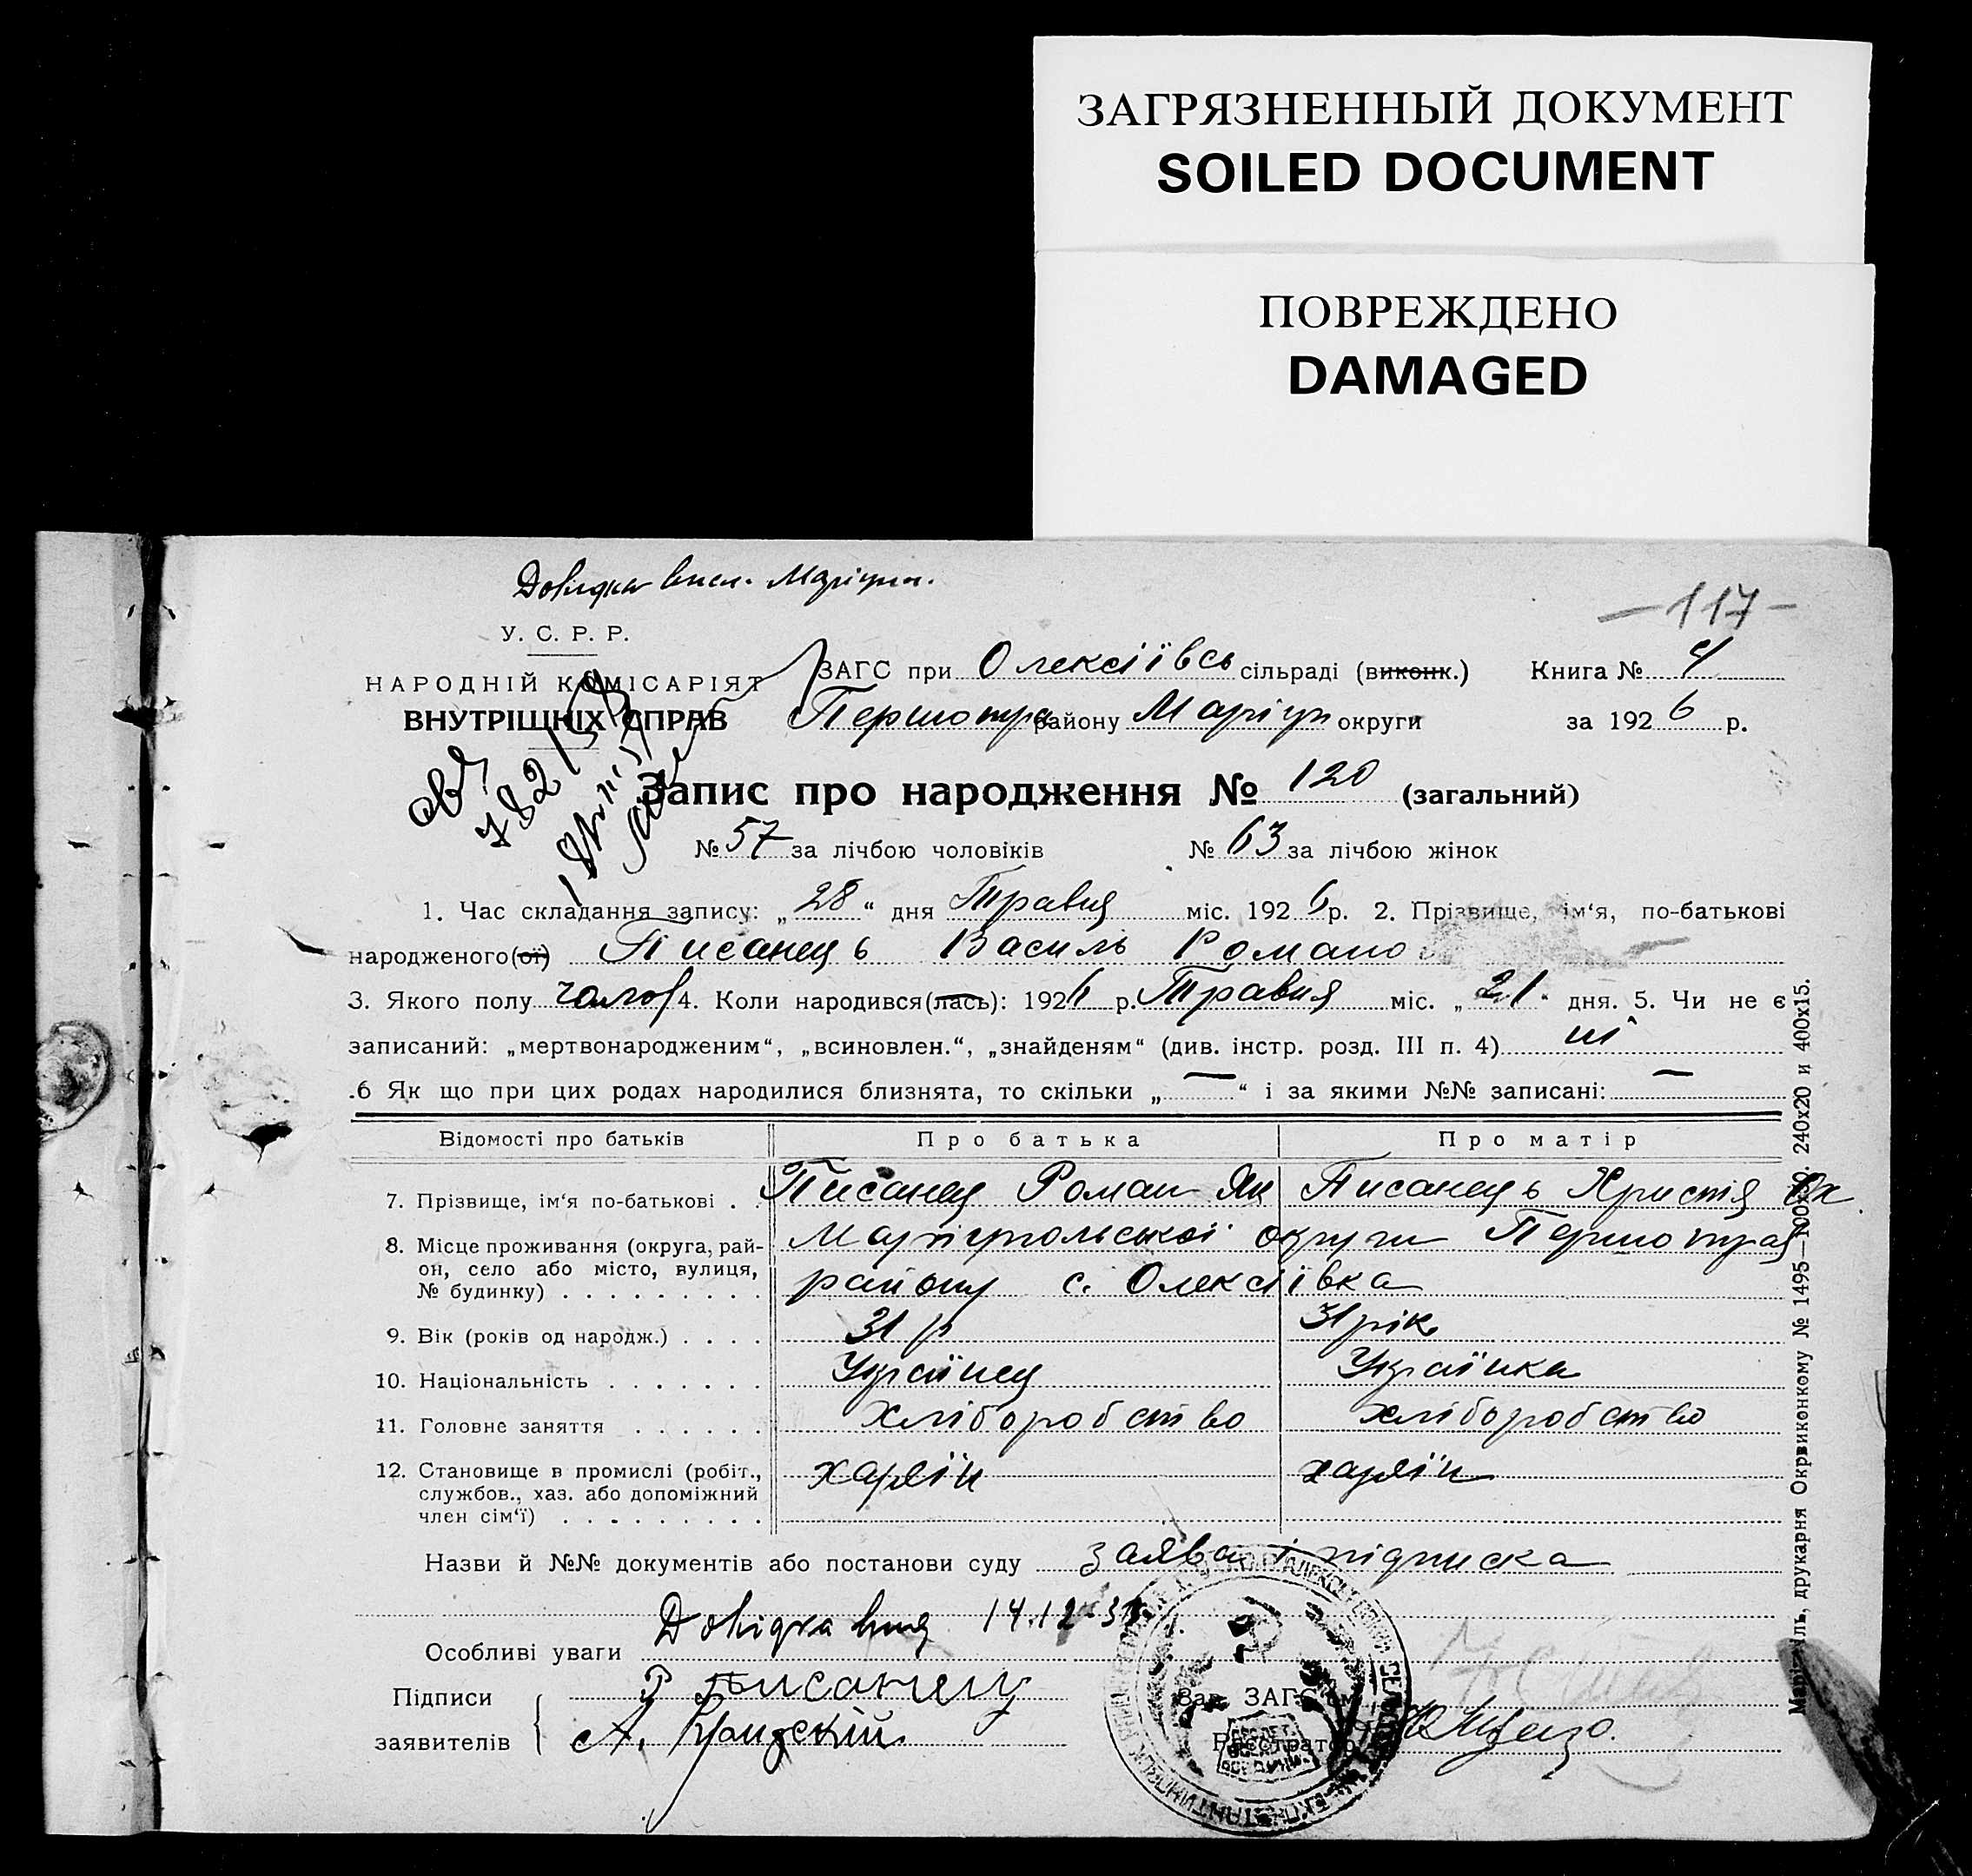 ЗАГРЯЗНЕННЫЙ ДОКУМЕНТ
SOILED DOCUMENT
ПОВРЕЖДЕНО
DAMAGED
Довідка Маріуп.
-117-
У. С. Р. Р.
НАРОДНІЙ КОМІСАРІЯТ
ВНУТРІШНІХ СПРАВ
ЗАГС при Олексіївсь сільраді (виконк.) Книга № 4
Першотра району Маріуп округи за 1926 р.
Запис про народження № 120 (загальний)
№ 57 за лічбою чоловіків № 63 за лічбою жінок
1. Час складання запису: „28“ дня Травня міс. 1926 р. 2. Прізвище, ім‘я, по-батькові
народженого(ої) Писанець Василь Романо
3. Якого полу чолов 4. Коли народився(лась): 1926 р. Травня міс. „21“ дня. 5. Чи не є
записаний: „мертвонародженим“, „всиновлен.“, „знайденям“ (див. інстр. розд. III п. 4) ні
.6 Як що при цих родах народилися близнята, то скільки „—“ і за якими №№ записані: —
Відомості про батьків Про батька Про матір
7. Прізвище, ім‘я по-батькові . . Писанец Роман Як Писанець Христя
8. Місце проживання (округа, рай- Маріупольської округи Першотрав
он, село або місто, вулиця, району с. Олексіївка
№ будинку) . . . . . . . . .
9. Вік (років од народж.) . . . . 31 р 31 рік
10. Національність . . . . . . . Українец Українка
11. Головне заняття . . . . . . хліборобство хліборобство
12. Становище в промислі (робіт.,
службов., хаз. або допоміжний
член сім‘ї) . . . . . . . . .
Назви й №№ документів або постанови суду заява і підписка
Довідка 14.12.
Особливі уваги
Підписи Р Писанец
заявителів А.
Зав. ЗАГС‘ом
Реєстратор
Маріуполь, друкарня Окрвиконкому № 1495—100х100. 240х20 и 400х15.